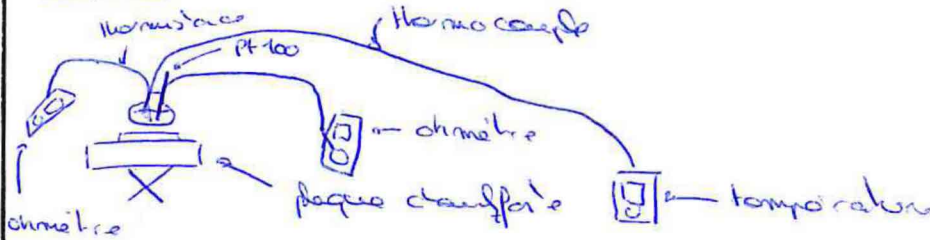 thermistance
thermocouple
Pt 100
ohmètre
plaque chauffante
température
ohmètre